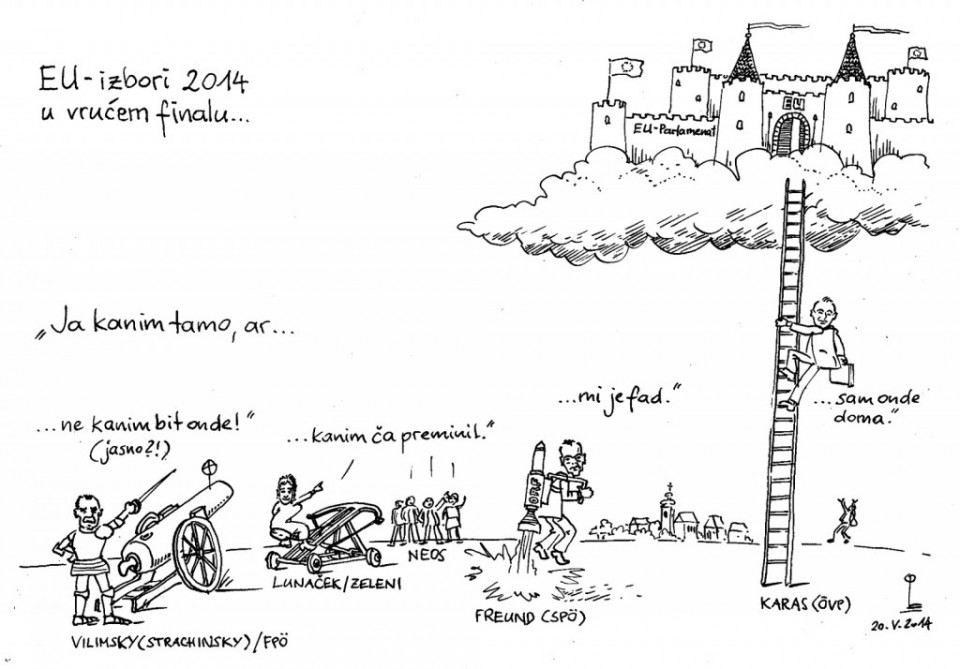 EU-izbori 2014
u vrućem finalu...
EU
EU-Parlamenat
„Ja kanim tamo, ar...
...ne kanim bit onde!"
(jasno?!)
...kanim ča preminit."
...mi je fad."
...sam onde
doma."
ORF
VILIMSKY (STRACHINSKY)/FPÖ
LUNAČEK/ZELENI
NEOS
FREUND (SPÖ)
KARAS (ÖVP)
20.V.2014